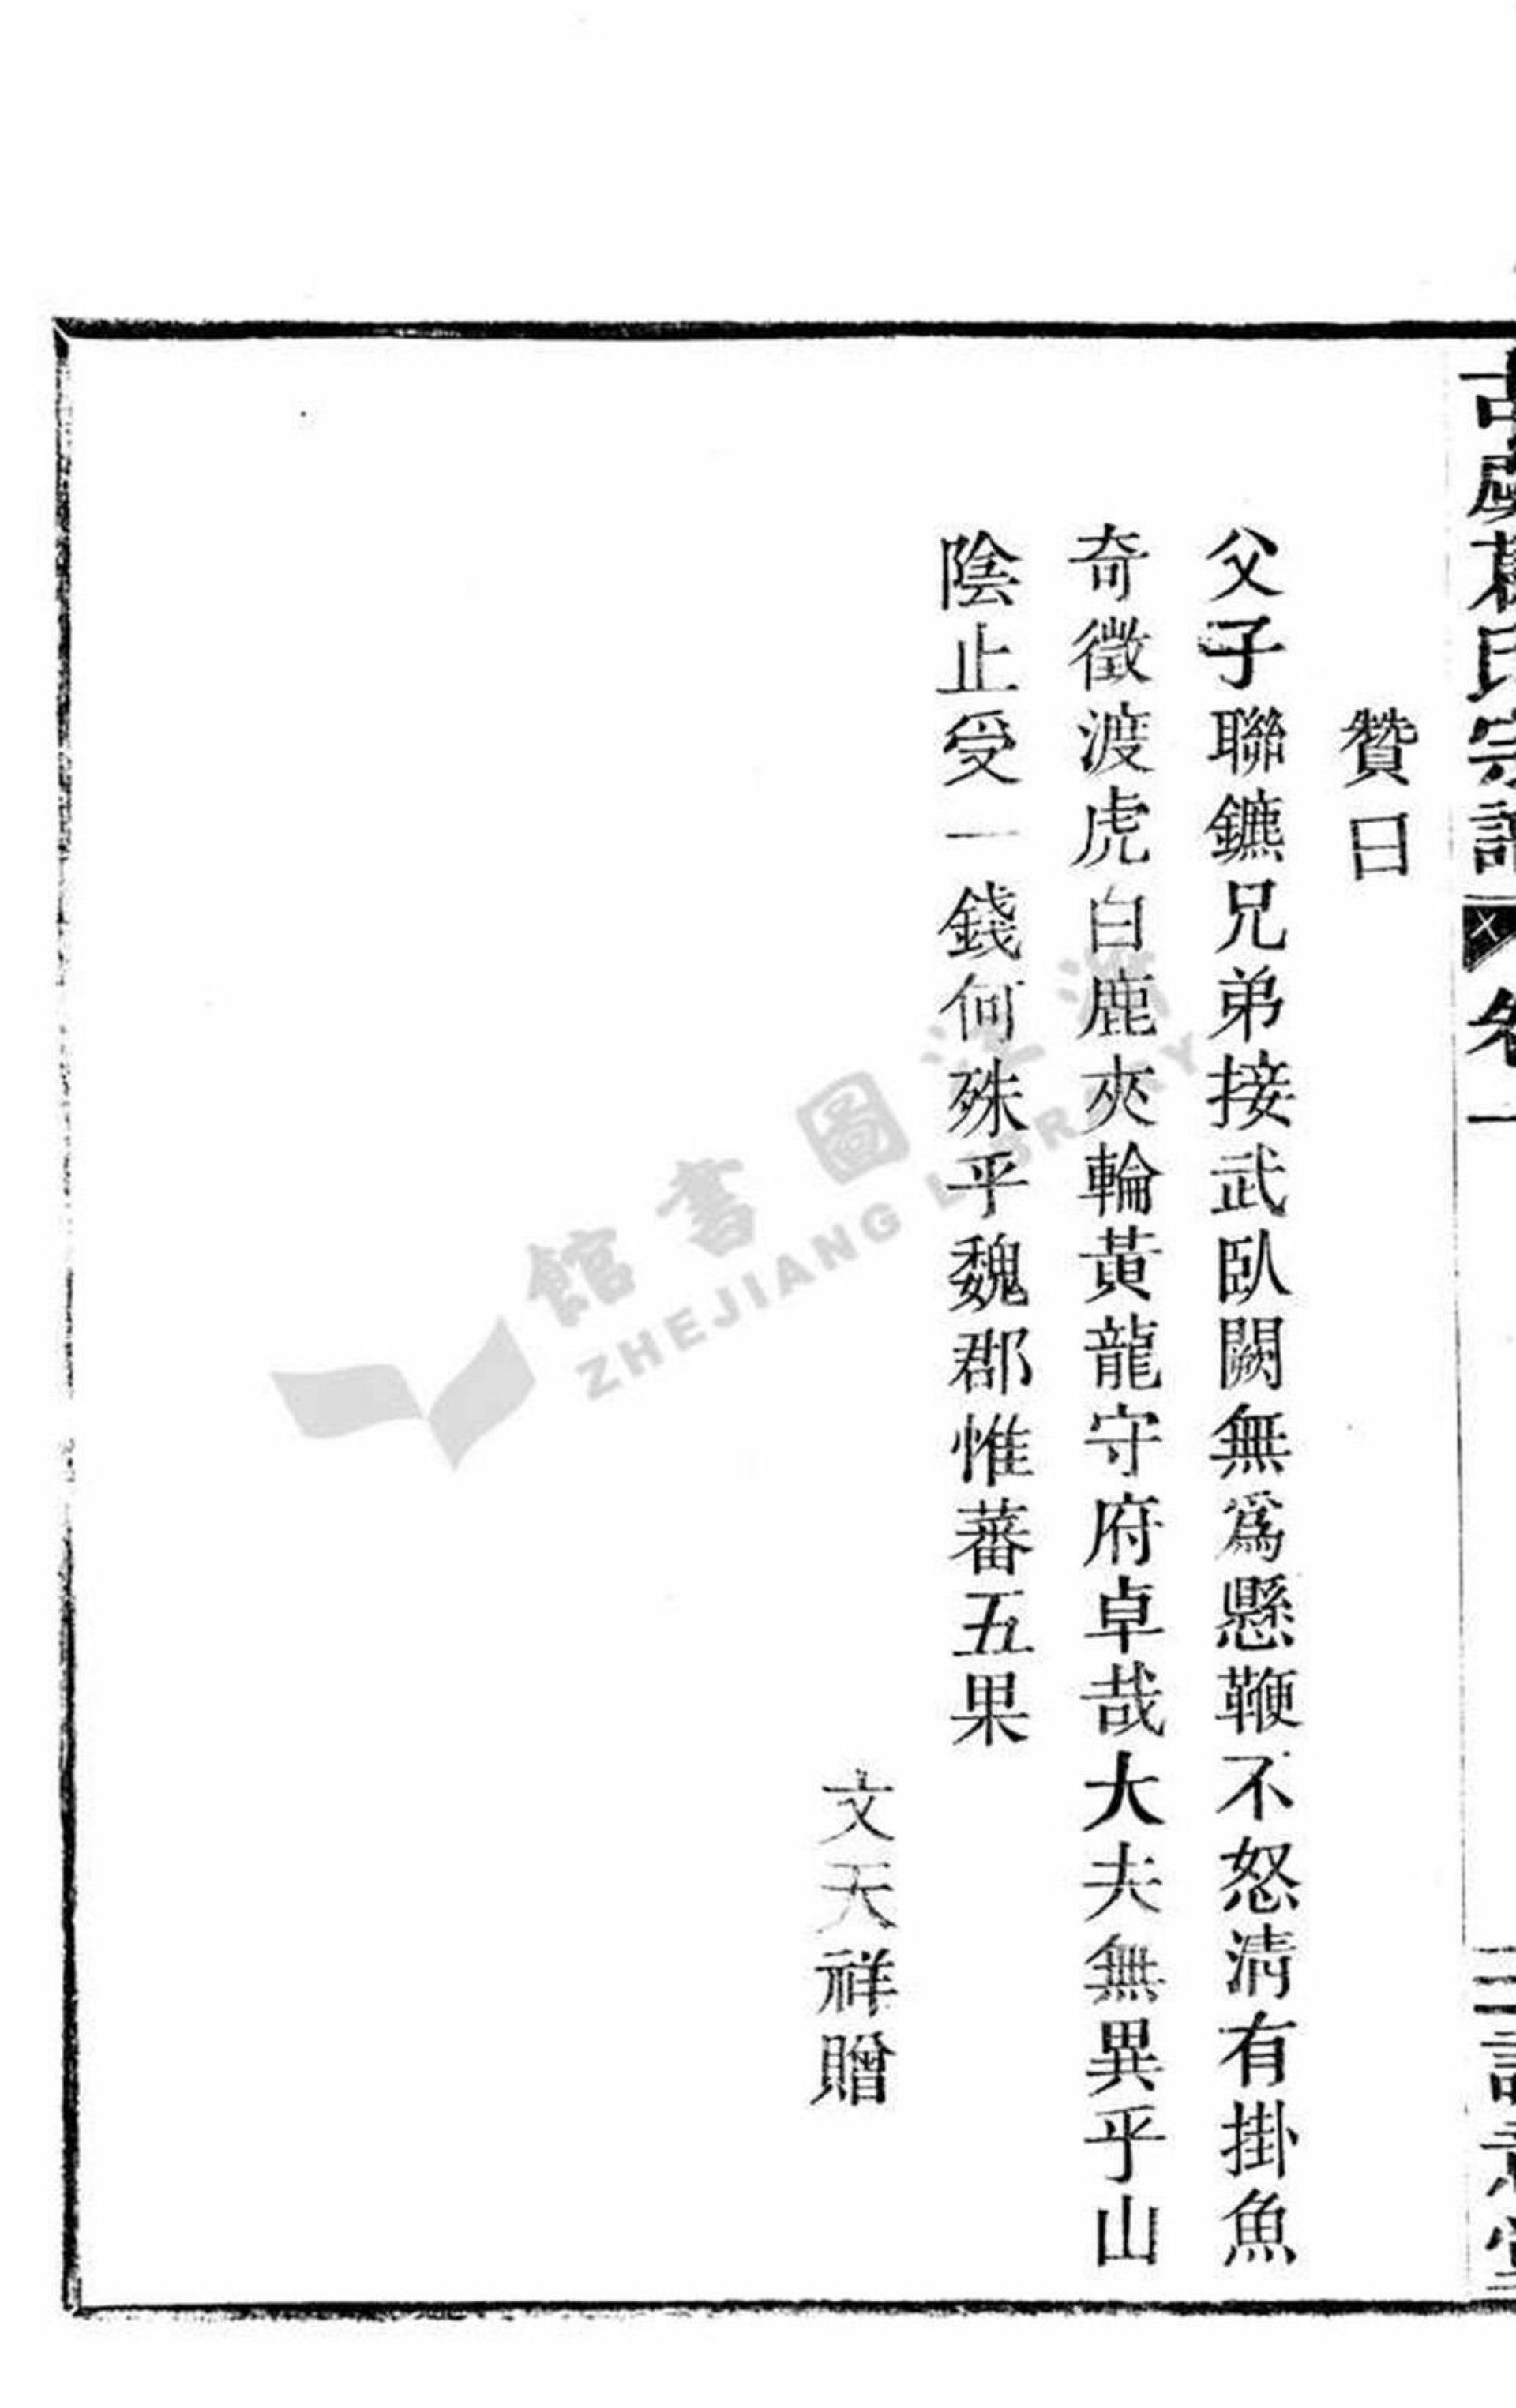 古虞葛氏宗譜 卷一
贊曰
父子聯鑣兄弟接武臥闕無爲懸鞭不怒清有掛魚
奇徵渡虎白鹿夾輪黃龍守府卓哉大夫無異乎山
陰止受一錢何殊乎魏郡惟蕃五果
文天祥贈
浙江圖書館
ZHEJIANG LIBRARY